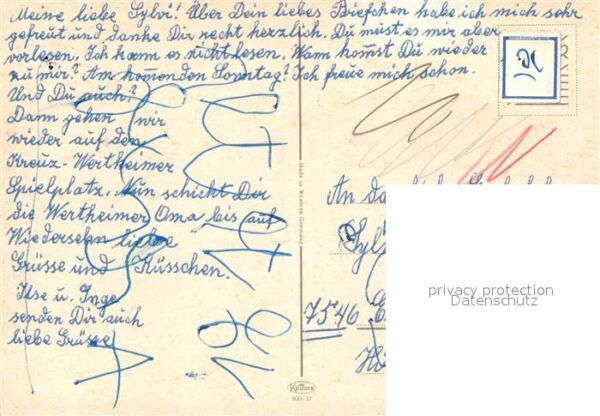 Meine liebe Sylvi! Über Dein liebes Briefchen habe ich mich sehr
gefreut und danke Dir recht herzlich. Du must es mir aber
vorlesen. Ich kann es nicht lesen. Wann komst Du wieder
zu mir? Am komenden Sonntag? Ich freue mich schon.
Und Du auch?
Dann gehen wir
wieder auf den
Kreuz-Wertheimer
Spielplatz. Nun schickt Dir
die Wertheimer Oma bis auf
Wiedersehn liebe
Grüsse und Küsschen.
Ilse u. Inge
senden Dir auch
liebe Grüsse
Made in Western Germany
Krüger
900/37
An da
Sylv
7546
privacy protection
Datenschutz